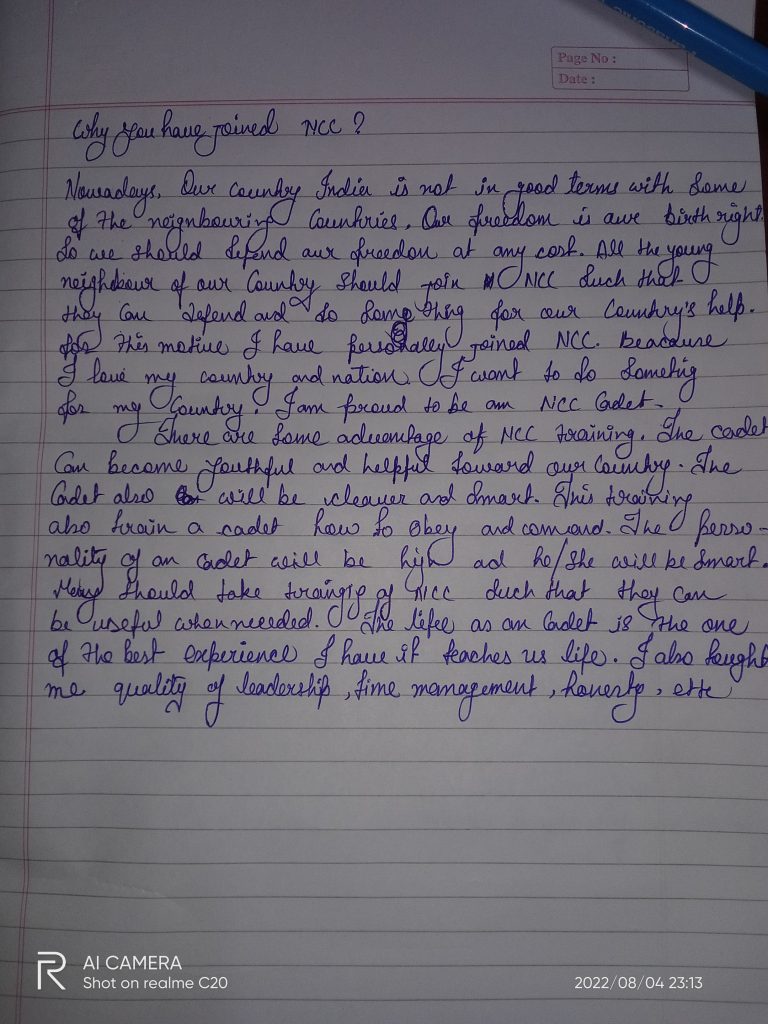 Page No :
Date :
Why you have joined NCC ?
Nowadays, Our country India is not in good terms with some
of the neignbouring Countries. Our freedom is our birth right.
So we should defend our freedom at any cost. All the young
neighbour of our Country should join NCC such that
they can defend and do something for our Country's help.
for this motive I have personaley joined NCC. Beacause
I love my country and nation. I want to do Sometig
for my Country. I am proud to be an NCC Cadet.
There are some advantage of NCC training. The cadet
Can become youthful and helpful toward our Country. The
Cadet also will be cleaver and Smart. This training
also train a cadet how to obey and comand. The perso-
nality of an cadet will be high ad he/She will be Smart.
should take traingig of NCC such that they can
be useful when needed. The lifee as an Cadet is the one
of the best experience I have it teaches us life. I also taught
me quality of leadership, time management, honesty, ettc
AI CAMERA
Shot on realme C20
2022/08/04 23:13